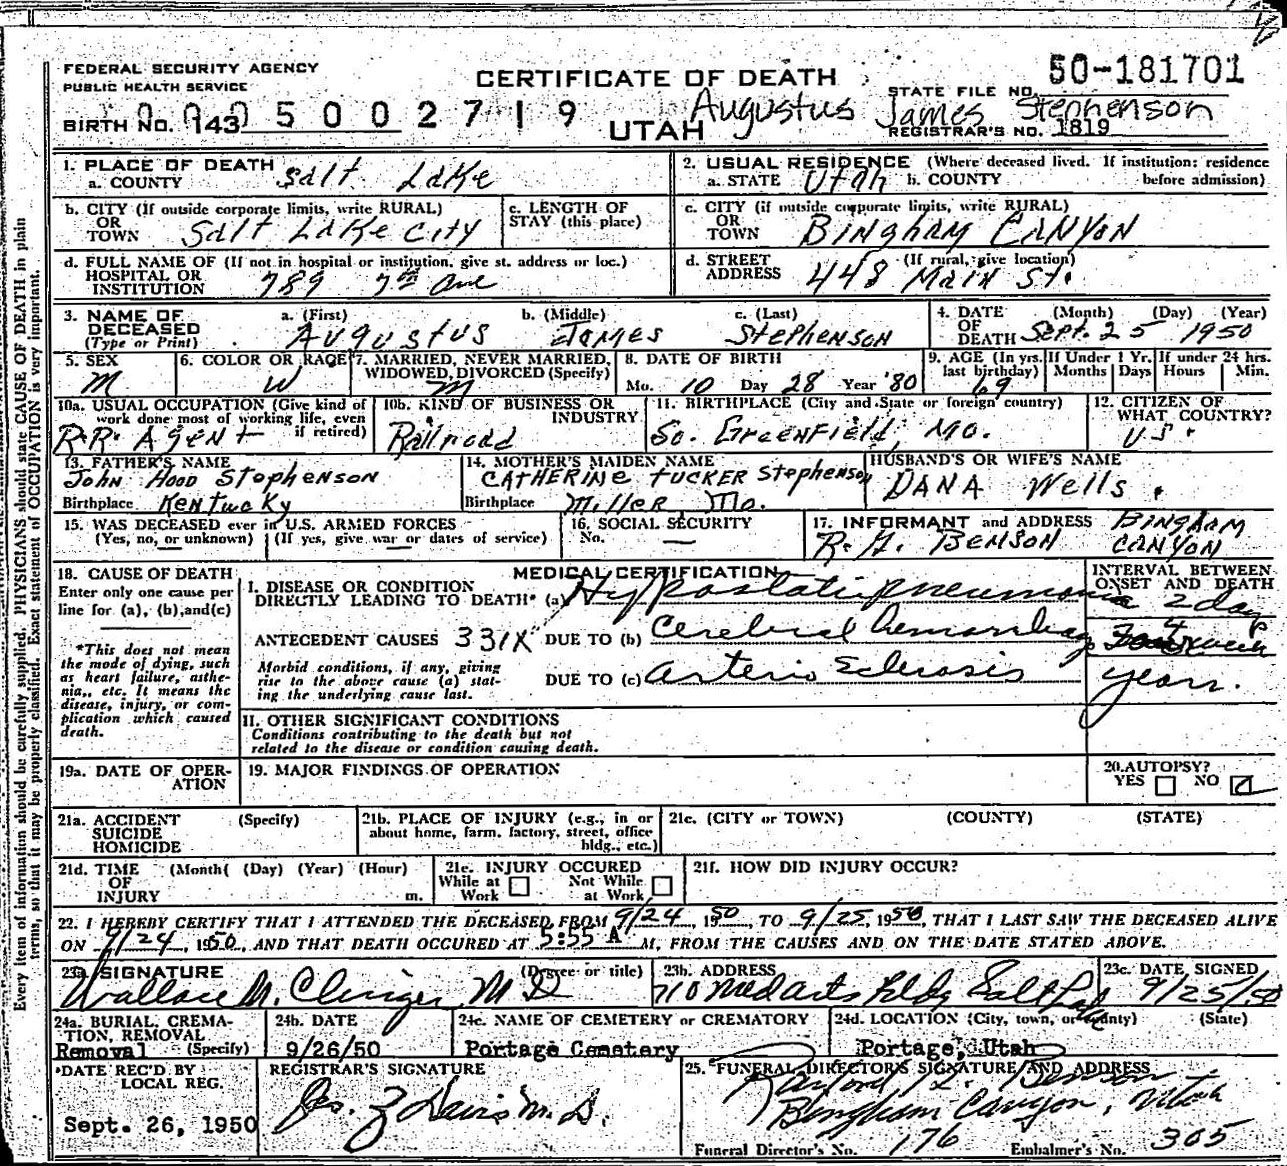 FEDERAL SECURITY AGENCY
PUBLIC HEALTH SERVICE
CERTIFICATE OF DEATH
50-181701
STATE FILE NO.
BIRTH NO. 143 5002719
UTAH
Augustus James Stephenson
REGISTRAR'S NO. 1819
Every item of information should be carefully supplied. PHYSICIANS should state CAUSE OF DEATH in plain
terms, so that it may be properly classified. Exact statement of OCCUPATION is very important.
1. PLACE OF DEATH
a. COUNTY Salt Lake
2. USUAL RESIDENCE (Where deceased lived. If institution: residence
a. STATE Utah b. COUNTY before admission)
b. CITY (If outside corporate limits, write RURAL)
OR
TOWN Salt Lake City
c. LENGTH OF
STAY (this place)
c. CITY (if outside corporate limits, write RURAL)
OR
TOWN Bingham Canyon
d. FULL NAME OF (If not in hospital or institution, give st. address or loc.)
HOSPITAL OR
INSTITUTION 789 7th Ave
d. STREET (If rural, give location)
ADDRESS 448 Main St.
3. NAME OF
DECEASED
(Type or Print)
a. (First) b. (Middle) c. (Last)
Augustus James Stephenson
4. DATE (Month) (Day) (Year)
OF
DEATH Sept. 25 1950
5. SEX
M
6. COLOR OR RACE
W
7. MARRIED, NEVER MARRIED,
WIDOWED, DIVORCED (Specify)
M
8. DATE OF BIRTH
Mo. 10 Day 28 Year '80
9. AGE (In yrs.
last birthday)
69
If Under 1 Yr.
Months Days
If under 24 hrs.
Hours Min.
10a. USUAL OCCUPATION (Give kind of
work done most of working life, even
if retired)
R.R. Agent
10b. KIND OF BUSINESS OR
INDUSTRY
Railroad
11. BIRTHPLACE (City and State or foreign country)
So. Greenfield, Mo.
12. CITIZEN OF
WHAT COUNTRY?
U.S.
13. FATHER'S NAME
John Hood Stephenson
Birthplace Kentucky
14. MOTHER'S MAIDEN NAME
Catherine Tucker Stephenson
Birthplace Miller Mo.
HUSBAND'S OR WIFE'S NAME
Dana Wells.
15. WAS DECEASED ever in U.S. ARMED FORCES
(Yes, no, or unknown) (If yes, give war or dates of service)
16. SOCIAL SECURITY
No. —
17. INFORMANT and ADDRESS Bingham
R. G. Benson Canyon
18. CAUSE OF DEATH
Enter only one cause per
line for (a), (b), and (c)
*This does not mean
the mode of dying, such
as heart failure, asthe-
nia,, etc. It means the
disease, injury, or com-
plication which caused
death.
MEDICAL CERTIFICATION
INTERVAL BETWEEN
ONSET AND DEATH
I. DISEASE OR CONDITION
DIRECTLY LEADING TO DEATH* (a) Hypostatic pneumonia 2 days
ANTECEDENT CAUSES 331X DUE TO (b) Cerebral hemorrhage 4 week
Morbid conditions, if any, giving
rise to the above cause (a) stat-
ing the underlying cause last.
DUE TO (c) arterio sclerosis years.
II. OTHER SIGNIFICANT CONDITIONS
Conditions contributing to the death but not
related to the disease or condition causing death.
19a. DATE OF OPER-
ATION
19. MAJOR FINDINGS OF OPERATION
20. AUTOPSY?
YES NO
21a. ACCIDENT (Specify)
SUICIDE
HOMICIDE
21b. PLACE OF INJURY (e.g., in or
about home, farm. factory, street, office
bldg., etc.)
21c. (CITY or TOWN) (COUNTY) (STATE)
21d. TIME (Month( (Day) (Year) (Hour)
OF
INJURY m.
21e. INJURY OCCURED
While at Work Not While at Work
21f. HOW DID INJURY OCCUR?
22. I HEREBY CERTIFY THAT I ATTENDED THE DECEASED FROM 9/24, 1950, TO 9/25, 1950, THAT I LAST SAW THE DECEASED ALIVE
ON 9/24, 1950, AND THAT DEATH OCCURED AT 5:55 A M., FROM THE CAUSES AND ON THE DATE STATED ABOVE.
23a. SIGNATURE (Degree or title)
Wallace M. Clinger M D
23b. ADDRESS
710 Med arts Bldg Salt Lake
23c. DATE SIGNED
9/25/50
24a. BURIAL, CREMA-
TION, REMOVAL
Removal (Specify)
24b. DATE
9/26/50
24c. NAME OF CEMETERY or CREMATORY
Portage Cemetery
24d. LOCATION (City, town, or county) (State)
Portage, Utah
DATE REC'D BY
LOCAL REG.
Sept. 26, 1950
REGISTRAR'S SIGNATURE
Jos. Z Davis M. D.
25. FUNERAL DIRECTOR'S SIGNATURE AND ADDRESS
Benson
Bingham Canyon, Utah
Funeral Director's No. 176 Embalmer's No. 305